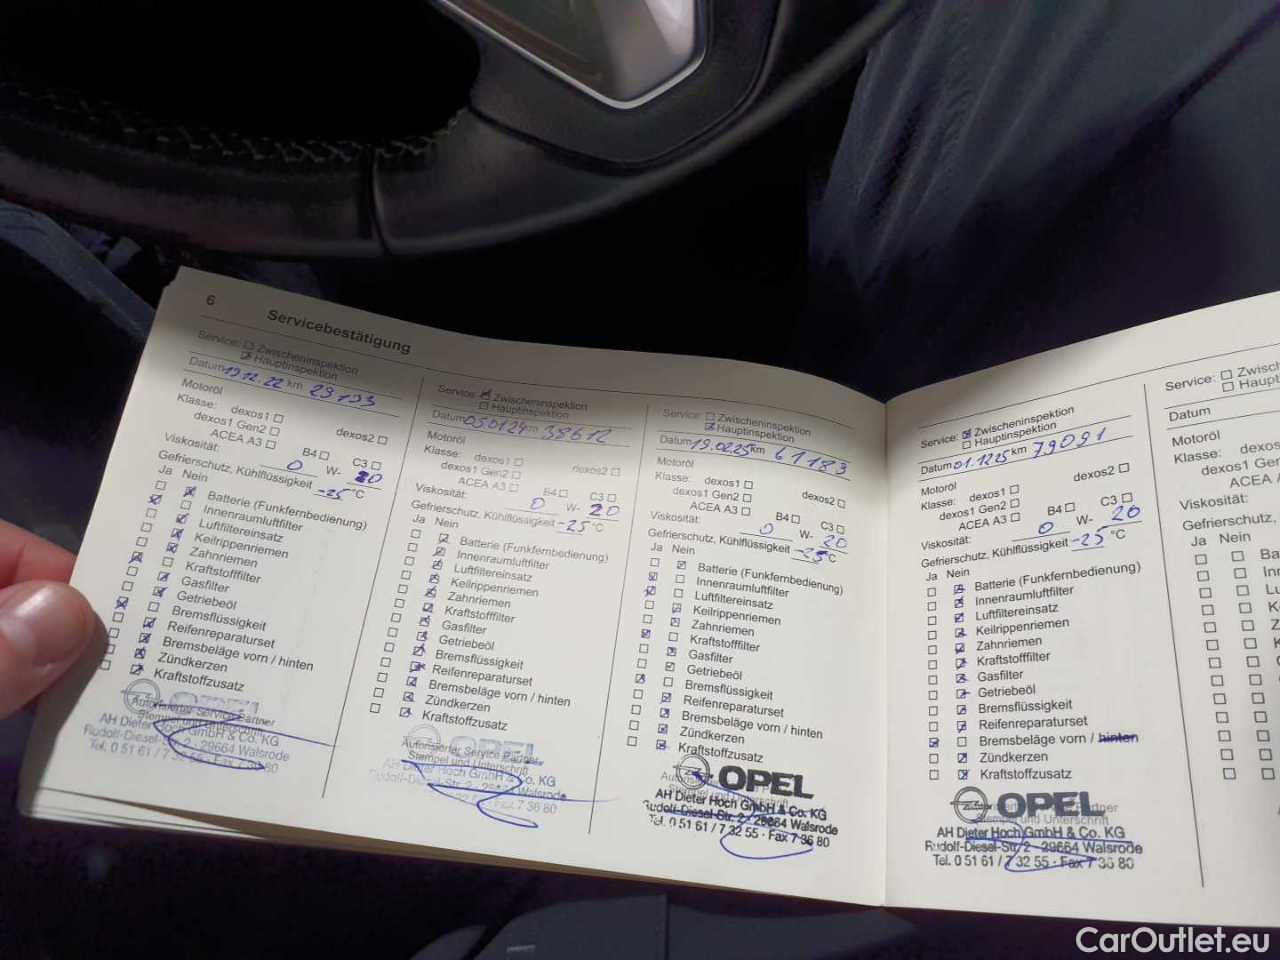 6 Servicebestätigung
Service: Zwischeninspektion
Hauptinspektion
Datum 19.12.22 km 29133
Motoröl
Klasse: dexos1
dexos1 Gen2 dexos2
ACEA A3 B4 C3
Viskosität: 0 W- 20
Gefrierschutz, Kühlflüssigkeit -25 °C
Ja Nein
Batterie (Funkfernbedienung)
Innenraumluftfilter
Luftfiltereinsatz
Keilrippenriemen
Zahnriemen
Kraftstofffilter
Gasfilter
Getriebeöl
Bremsflüssigkeit
Reifenreparaturset
Bremsbeläge vorn / hinten
Zündkerzen
Kraftstoffzusatz
OPEL
Autorisierter Service Partner
Stempel und Unterschrift
AH Dieter Hoch GmbH & Co. KG
Rudolf-Diesel-Str. 2 - 29664 Walsrode
Tel. 0 51 61 / 7 32 55 - Fax 7 36 80
Service: Zwischeninspektion
Hauptinspektion
Datum 05.01.24 km 38612
Motoröl
Klasse: dexos1
dexos1 Gen2 dexos2
ACEA A3 B4 C3
Viskosität: 0 W- 20
Gefrierschutz, Kühlflüssigkeit -25 °C
Ja Nein
Batterie (Funkfernbedienung)
Innenraumluftfilter
Luftfiltereinsatz
Keilrippenriemen
Zahnriemen
Kraftstofffilter
Gasfilter
Getriebeöl
Bremsflüssigkeit
Reifenreparaturset
Bremsbeläge vorn / hinten
Zündkerzen
Kraftstoffzusatz
OPEL
Autorisierter Service Partner
Stempel und Unterschrift
AH Dieter Hoch GmbH & Co. KG
Rudolf-Diesel-Str. 2 - 29664 Walsrode
Fax 7 36 80
Service: Zwischeninspektion
Hauptinspektion
Datum 19.02.25 km 61183
Motoröl
Klasse: dexos1
dexos1 Gen2 dexos2
ACEA A3 B4 C3
Viskosität: 0 W- 20
Gefrierschutz, Kühlflüssigkeit -25 °C
Ja Nein
Batterie (Funkfernbedienung)
Innenraumluftfilter
Luftfiltereinsatz
Keilrippenriemen
Zahnriemen
Kraftstofffilter
Gasfilter
Getriebeöl
Bremsflüssigkeit
Reifenreparaturset
Bremsbeläge vorn / hinten
Zündkerzen
Kraftstoffzusatz
OPEL
AH Dieter Hoch GmbH & Co. KG
Rudolf-Diesel-Str. 2 - 29664 Walsrode
Tel. 0 51 61 / 7 32 55 - Fax 7 36 80
Service: Zwischeninspektion
Hauptinspektion
Datum 01.12.25 km 79091
Motoröl
Klasse: dexos1
dexos1 Gen2 dexos2
ACEA A3 B4 C3
Viskosität: 0 W- 20
Gefrierschutz, Kühlflüssigkeit -25 °C
Ja Nein
Batterie (Funkfernbedienung)
Innenraumluftfilter
Luftfiltereinsatz
Keilrippenriemen
Zahnriemen
Kraftstofffilter
Gasfilter
Getriebeöl
Bremsflüssigkeit
Reifenreparaturset
Bremsbeläge vorn / hinten
Zündkerzen
Kraftstoffzusatz
OPEL
Stempel und Unterschrift
AH Dieter Hoch GmbH & Co. KG
Rudolf-Diesel-Str. 2 - 29664 Walsrode
Tel. 0 51 61 / 7 32 55 - Fax 7 36 80
Service: Zwisch
Haupt
Datum
Motoröl
Klasse: dexos
dexos1
ACEA
Viskosität:
Gefrierschutz,
Ja Nein
CarOutlet.eu